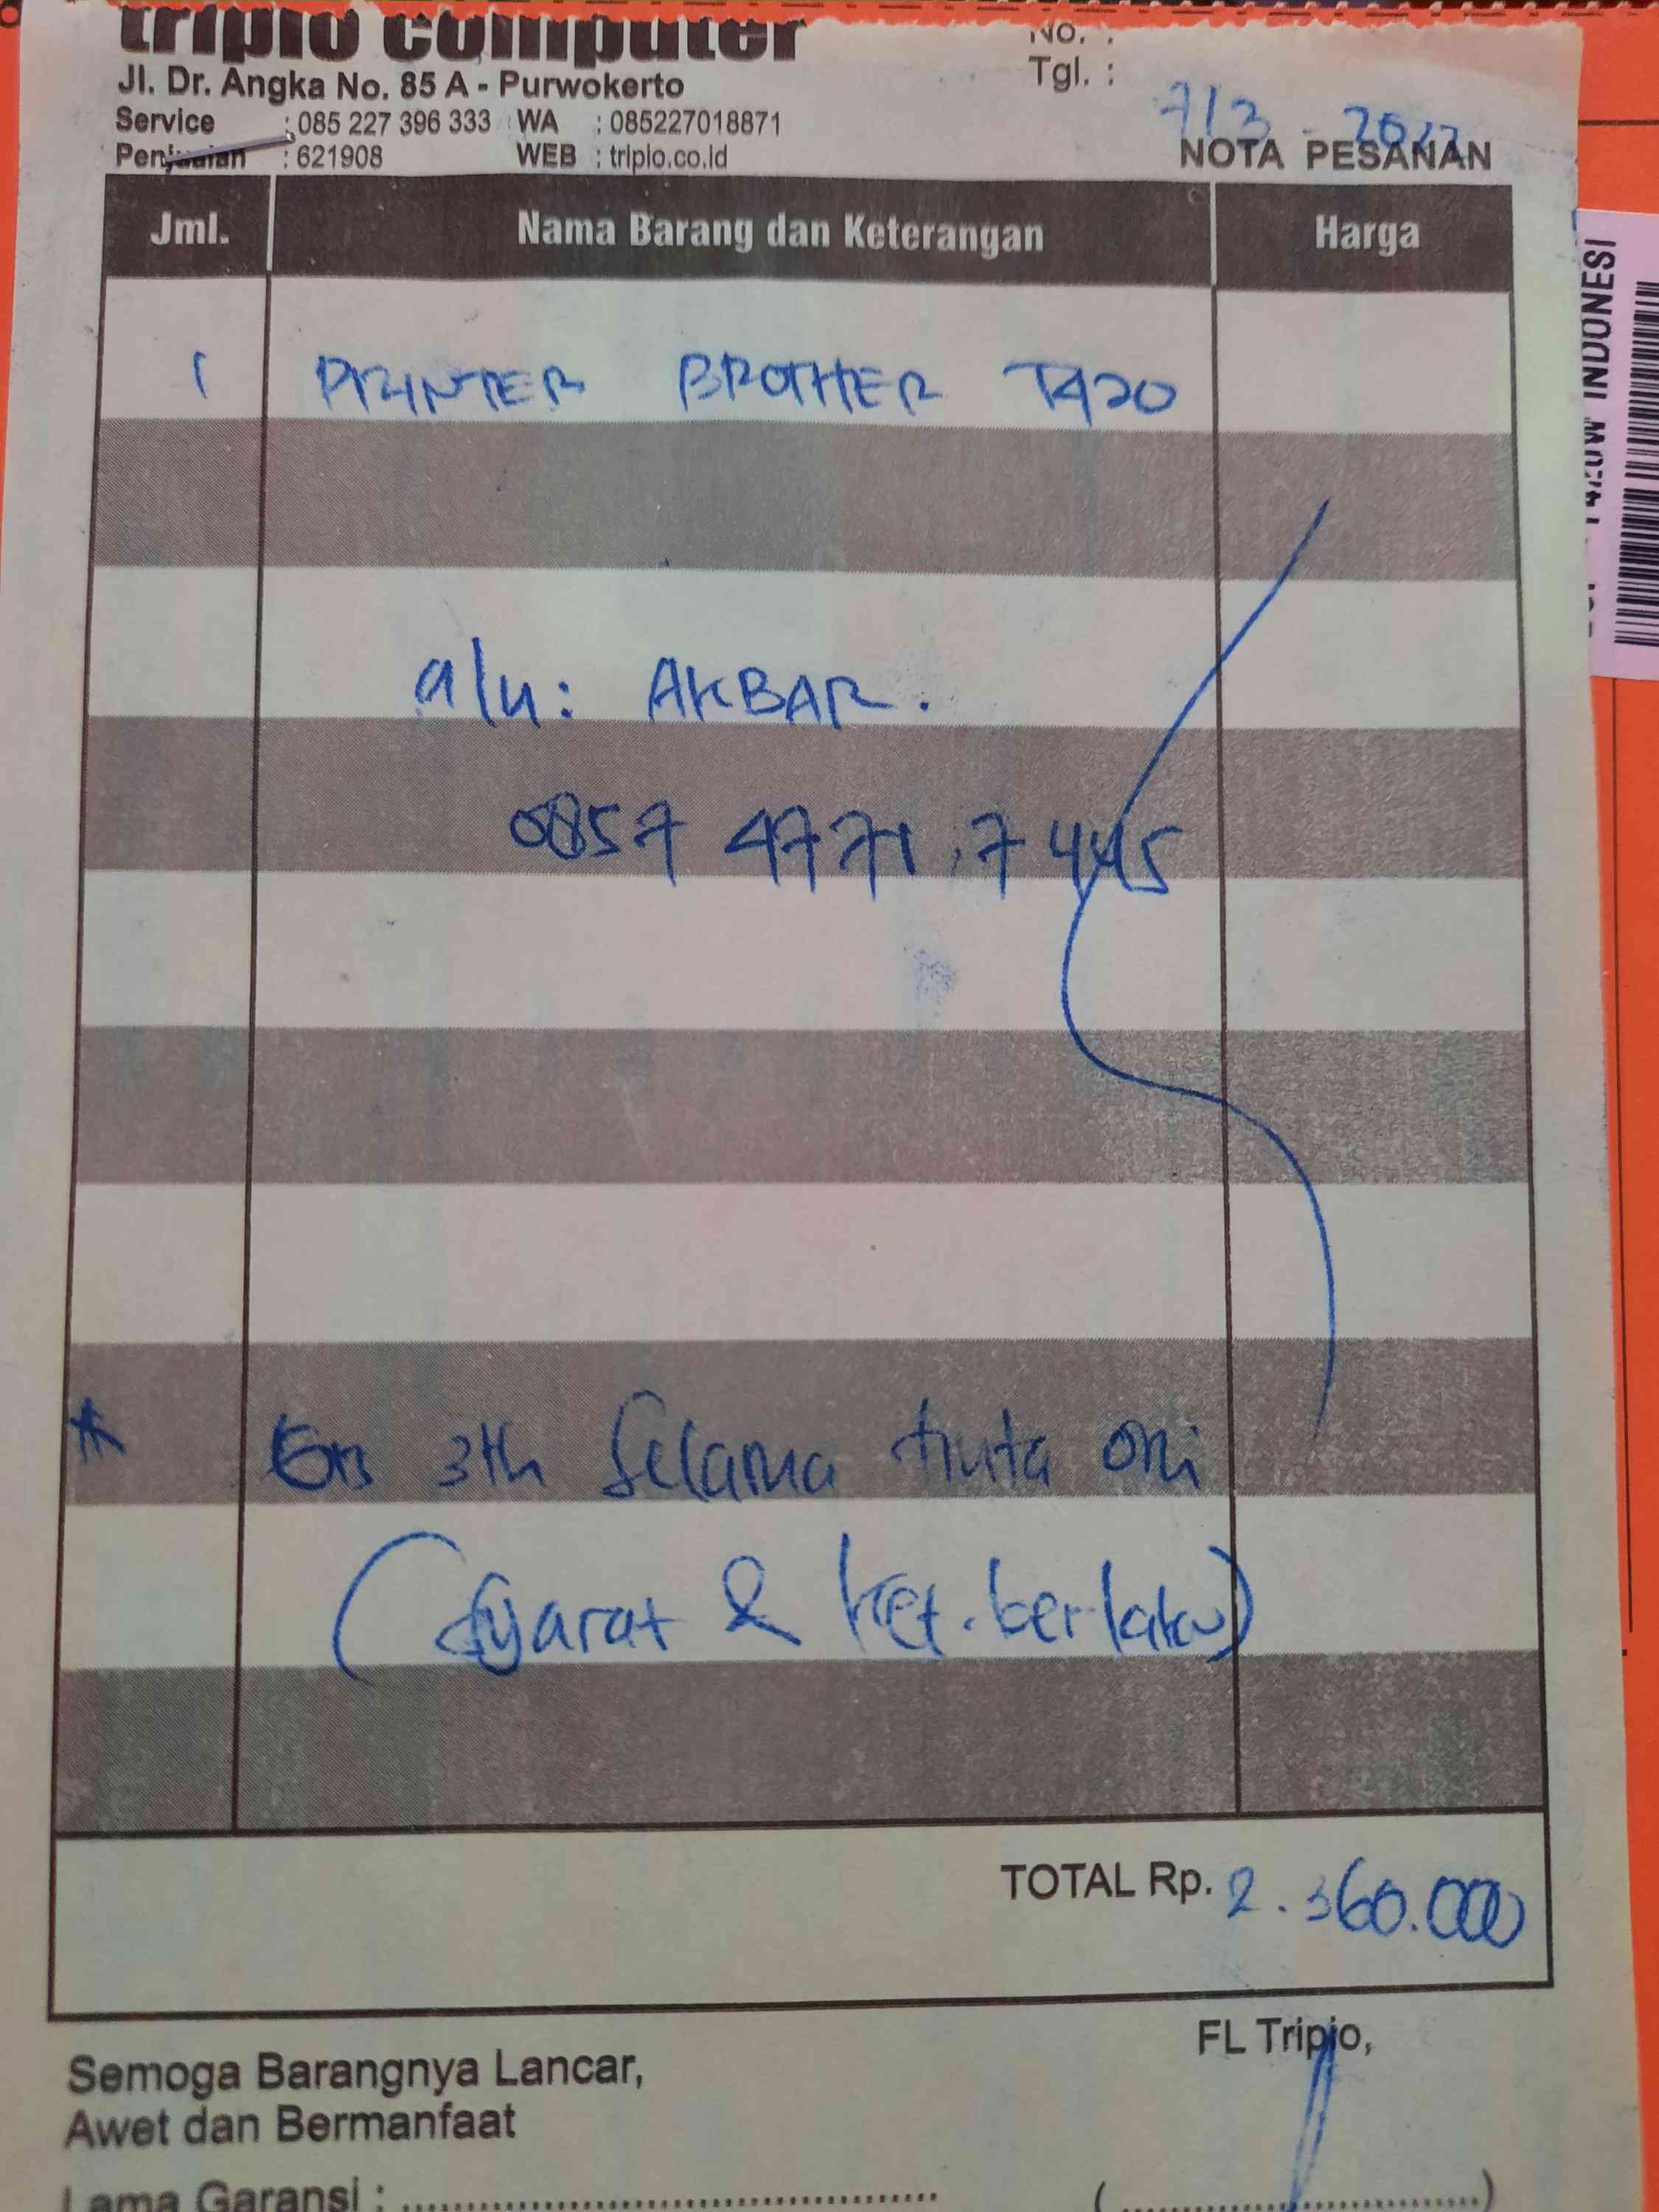 tripio computer
No. :
Jl. Dr. Angka No. 85 A - Purwokerto
Tgl. :
Service : 085 227 396 333 WA : 085227018871
7/3 - 2022
Penjualan : 621908 WEB : tripio.co.id
NOTA PESANAN
Jml. Nama Barang dan Keterangan Harga
1 PRINTER BROTHER T420
a/n: AKBAR.
0857 4771.7445
* Grs 3th selama tinta ori
(syarat & ket. berlaku)
TOTAL Rp. 2.360.000
FL Tripio,
Semoga Barangnya Lancar,
Awet dan Bermanfaat
Lama Garansi : ........................................ (..............................)
T420W INDONESI